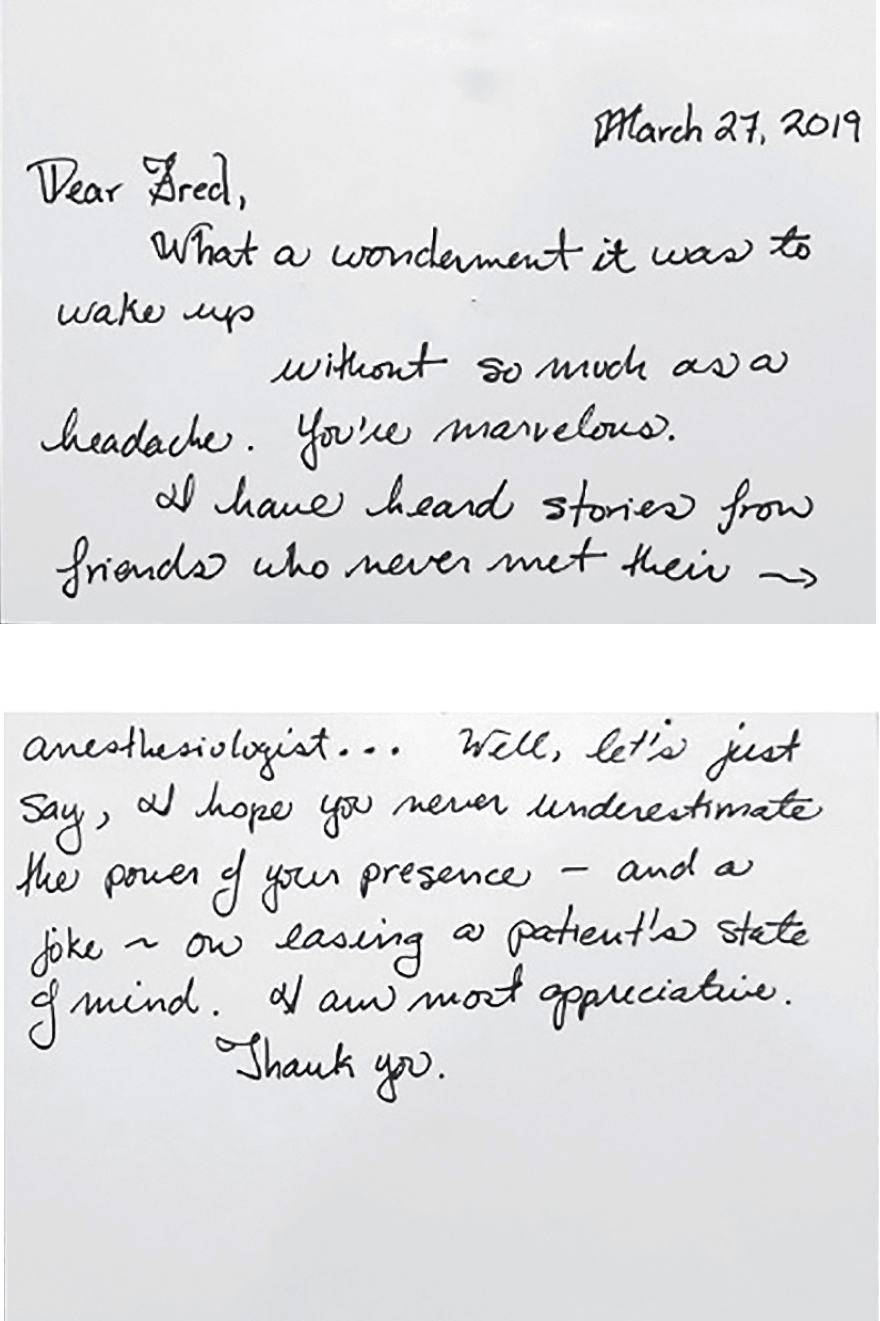 March 27, 2019
Dear Fred,
What a wonderment it was to
wake up
without so much as a
headache. You're marvelous.
I have heard stories from
friends who never met their →
anesthesiologist... Well, let's just
say, I hope you never underestimate
the power of your presence – and a
joke ~ on easing a patient's state
of mind. I am most appreciative.
Thank you.